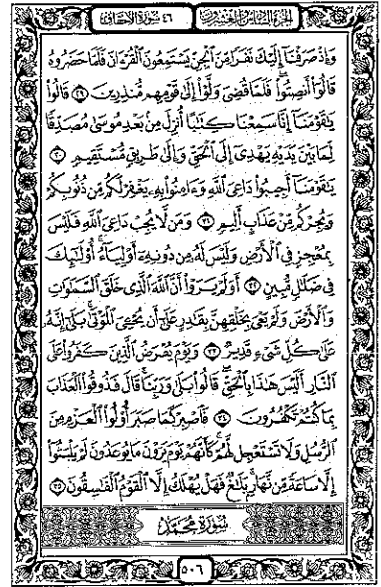 الجزء السادس والعشرون ٤٦ سورة الأحقاف
وَإِذْ صَرَفْنَآ إِلَيْكَ نَفَرًا مِّنَ ٱلْجِنِّ يَسْتَمِعُونَ ٱلْقُرْءَانَ فَلَمَّا حَضَرُوهُ
قَالُوٓا۟ أَنصِتُوا۟ ۖ فَلَمَّا قُضِىَ وَلَّوْا۟ إِلَىٰ قَوْمِهِم مُّنذِرِينَ ٢٩ قَالُوا۟
يَٰقَوْمَنَآ إِنَّا سَمِعْنَا كِتَٰبًا أُنزِلَ مِنۢ بَعْدِ مُوسَىٰ مُصَدِّقًا
لِّمَا بَيْنَ يَدَيْهِ يَهْدِىٓ إِلَى ٱلْحَقِّ وَإِلَىٰ طَرِيقٍ مُّسْتَقِيمٍ ٣٠
يَٰقَوْمَنَآ أَجِيبُوا۟ دَاعِىَ ٱللَّهِ وَءَامِنُوا۟ بِهِۦ يَغْفِرْ لَكُم مِّن ذُنُوبِكُمْ
وَيُجِرْكُم مِّنْ عَذَابٍ أَلِيمٍ ٣١ وَمَن لَّا يُجِبْ دَاعِىَ ٱللَّهِ فَلَيْسَ
بِمُعْجِزٍ فِى ٱلْأَرْضِ وَلَيْسَ لَهُۥ مِن دُونِهِۦٓ أَوْلِيَآءُ ۚ أُو۟لَٰٓئِكَ
فِى ضَلَٰلٍ مُّبِينٍ ٣٢ أَوَلَمْ يَرَوْا۟ أَنَّ ٱللَّهَ ٱلَّذِى خَلَقَ ٱلسَّمَٰوَٰتِ
وَٱلْأَرْضَ وَلَمْ يَعْىَ بِخَلْقِهِنَّ بِقَٰدِرٍ عَلَىٰٓ أَن يُحْـِۧىَ ٱلْمَوْتَىٰ ۚ بَلَىٰٓ إِنَّهُۥ
عَلَىٰ كُلِّ شَىْءٍ قَدِيرٌ ٣٣ وَيَوْمَ يُعْرَضُ ٱلَّذِينَ كَفَرُوا۟ عَلَى
ٱلنَّارِ أَلَيْسَ هَٰذَا بِٱلْحَقِّ ۖ قَالُوا۟ بَلَىٰ وَرَبِّنَا ۚ قَالَ فَذُوقُوا۟ ٱلْعَذَابَ
بِمَا كُنتُمْ تَكْفُرُونَ ٣٤ فَٱصْبِرْ كَمَا صَبَرَ أُو۟لُوا۟ ٱلْعَزْمِ مِنَ
ٱلرُّسُلِ وَلَا تَسْتَعْجِل لَّهُمْ ۚ كَأَنَّهُمْ يَوْمَ يَرَوْنَ مَا يُوعَدُونَ لَمْ يَلْبَثُوٓا۟
إِلَّا سَاعَةً مِّن نَّهَارٍۭ ۚ بَلَٰغٌ ۚ فَهَلْ يُهْلَكُ إِلَّا ٱلْقَوْمُ ٱلْفَٰسِقُونَ ٣٥
سورة محمد
٥٠٦